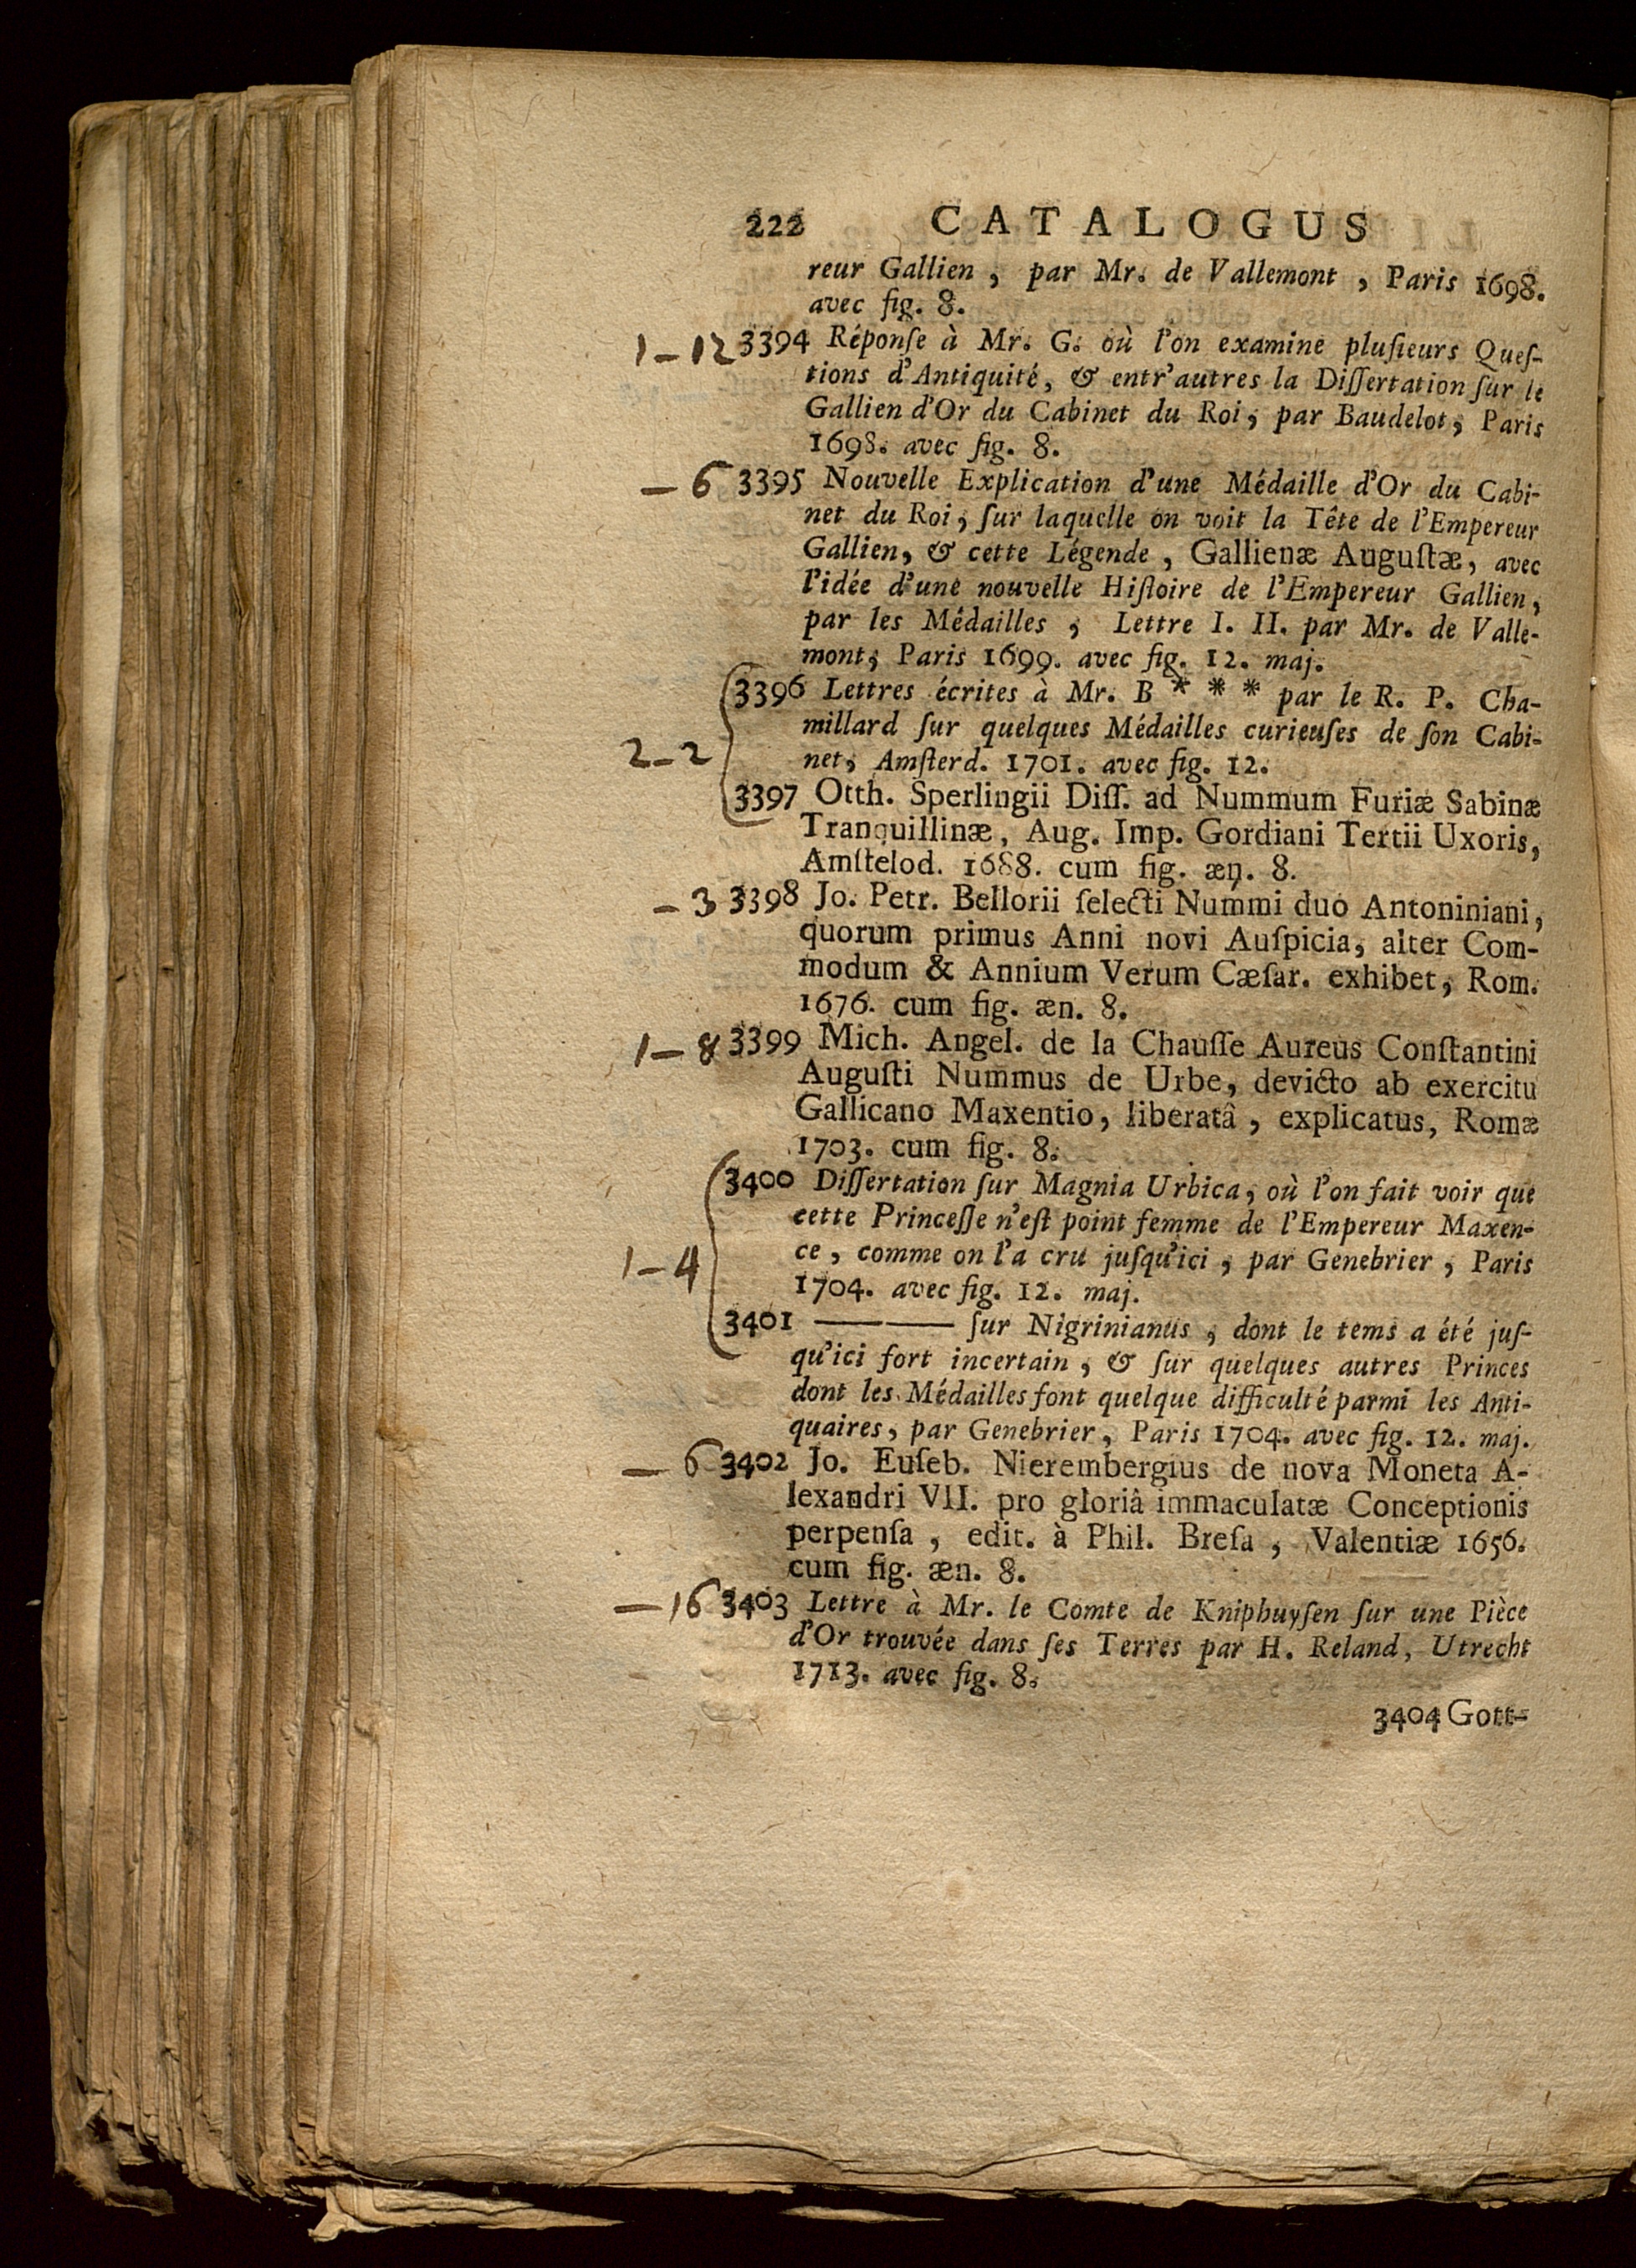 222 CATALOGUS
reur Gallien, par Mr. de Vallemont, Paris 1698.
avec fig. 8.
1-12 3394 Réponſe à Mr. G. où l'on examine pluſieurs Queſ-
tions d'Antiquité, & entr'autres la Diſſertation ſur le
Gallien d'Or du Cabinet du Roi, par Baudelot, Paris
1698. avec fig. 8.
— 6 3395 Nouvelle Explication d'une Médaille d'Or du Cabi-
net du Roi, ſur laquelle on voit la Tête de l'Empereur
Gallien, & cette Légende, Gallienæ Auguſtæ, avec
l'idée d'une nouvelle Hiſtoire de l'Empereur Gallien,
par les Médailles, Lettre I. II. par Mr. de Valle-
mont, Paris 1699. avec fig. 12. maj.
3396 Lettres écrites à Mr. B * * * par le R. P. Cha-
millard ſur quelques Médailles curieuſes de ſon Cabi-
2-2 net, Amſterd. 1701. avec fig. 12.
3397 Otth. Sperlingii Diſſ. ad Nummum Furiæ Sabinæ
Tranquillinæ, Aug. Imp. Gordiani Tertii Uxoris,
Amſtelod. 1688. cum fig. æn. 8.
— 3 3398 Jo. Petr. Bellorii ſelecti Nummi duo Antoniniani,
quorum primus Anni novi Auſpicia, alter Com-
modum & Annium Verum Cæſar. exhibet, Rom.
1676. cum fig. æn. 8.
1-8 3399 Mich. Angel. de la Chauſſe Aureus Conſtantini
Auguſti Nummus de Urbe, devicto ab exercitu
Gallicano Maxentio, liberatâ, explicatus, Romæ
1703. cum fig. 8.
3400 Diſſertation ſur Magnia Urbica, où l'on fait voir que
cette Princeſſe n'eſt point femme de l'Empereur Maxen-
1-4 ce, comme on l'a cru juſqu'ici, par Genebrier, Paris
1704. avec fig. 12. maj.
3401 —— —— ſur Nigrinianus, dont le tems a été juſ-
qu'ici fort incertain, & ſur quelques autres Princes
dont les Médailles font quelque difficulté parmi les Anti-
quaires, par Genebrier, Paris 1704. avec fig. 12. maj.
— 6 3402 Jo. Euſeb. Nierembergius de nova Moneta A-
lexandri VII. pro gloriâ immaculatæ Conceptionis
perpenſa, edit. à Phil. Breſa, Valentiæ 1656.
cum fig. æn. 8.
— 16 3403 Lettre à Mr. le Comte de Kniphuyſen ſur une Pièce
d'Or trouvée dans ſes Terres par H. Reland, Utrecht
1713. avec fig. 8.
3404 Gott-